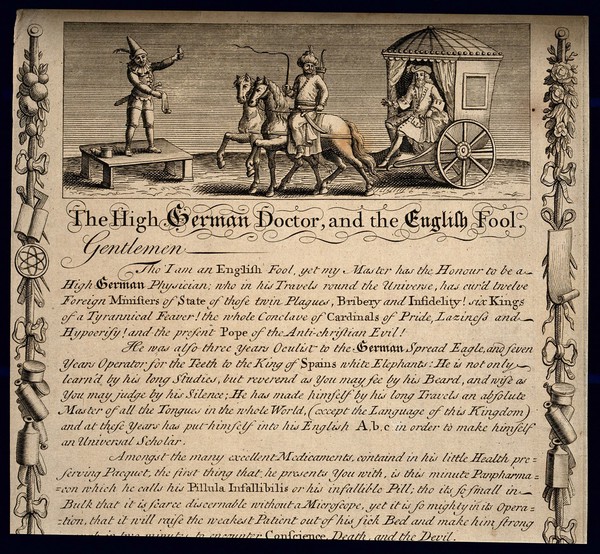 The High German Doctor, and the English Fool.
Gentlemen
Tho I am an English Fool, yet my Master has the Honour to be a
High German Physician; who in his Travels round the Universe, has cur'd twelve
Foreign Ministers of State of those twin Plagues, Bribery and Infidelity! six Kings
of a Tyrannical Feaver! the whole Conclave of Cardinals of Pride, Laziness and
Hypocrisy! and the present Pope of the Anti-christian Evil!
He was also three Years Oculist to the German Spread Eagle, and seven
Years Operator for the Teeth to the King of Spains white Elephants: He is not only
learn'd by his long Studies, but reverend as You may see by his Beard, and wise as
You may judge by his Silence; He has made himself by his long Travels an absolute
Master of all the Tongues in the whole World, (except the Language of this Kingdom)
and at these Years has put himself into his English A,b,c in order to make himself
an Universal Scholar.
Amongst the many excellent Medicaments, containd in his little Health pre=
serving Pacquet, the first thing that, he presents You with, is this minute Panpharma=
=con which he calls his Pillula Infallibilis or his infallible Pill; tho its so small in
Bulk that it is scarce discernable without a Microscope, yet it is so mighty in its Opera=
=tion, that it will raise the weakest Patient out of his sick Bed and make him strong
in two minuts to encounter Conscience, Death, and the Devil.